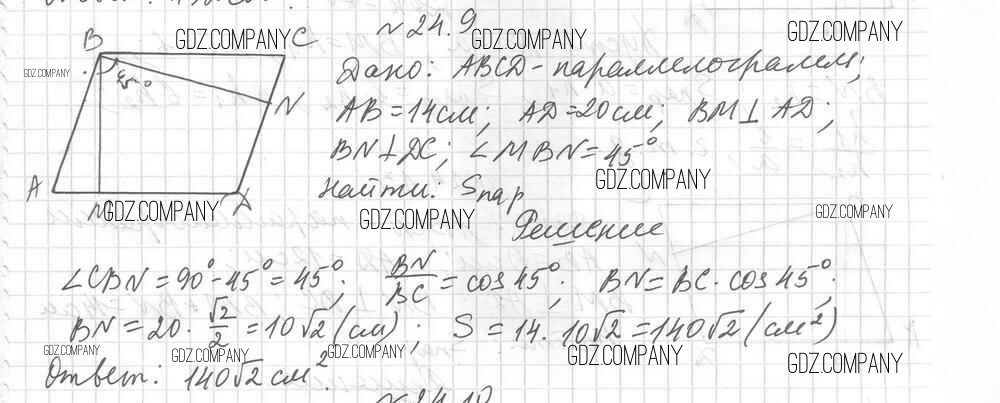 № 24.9
Дано: ABCD - параллелограмм;
AB = 14 см; AD = 20 см; BM ⊥ AD;
BN ⊥ DC; ∠MBN = 45°
Найти: Sпар
Решение
∠CBN = 90° - 45° = 45°; BN/BC = cos 45°; BN = BC · cos 45°;
BN = 20 · √2/2 = 10√2 (см); S = 14 · 10√2 = 140√2 (см²)
Ответ: 140√2 см².
№ 24.10
B
C
45°
N
A
M
GDZ.COMPANY
GDZ.COMPANY
GDZ.COMPANY
GDZ.COMPANY
GDZ.COMPANY
GDZ.COMPANY
GDZ.COMPANY
GDZ.COMPANY
GDZ.COMPANY
GDZ.COMPANY
GDZ.COMPANY
GDZ.COMPANY
GDZ.COMPANY